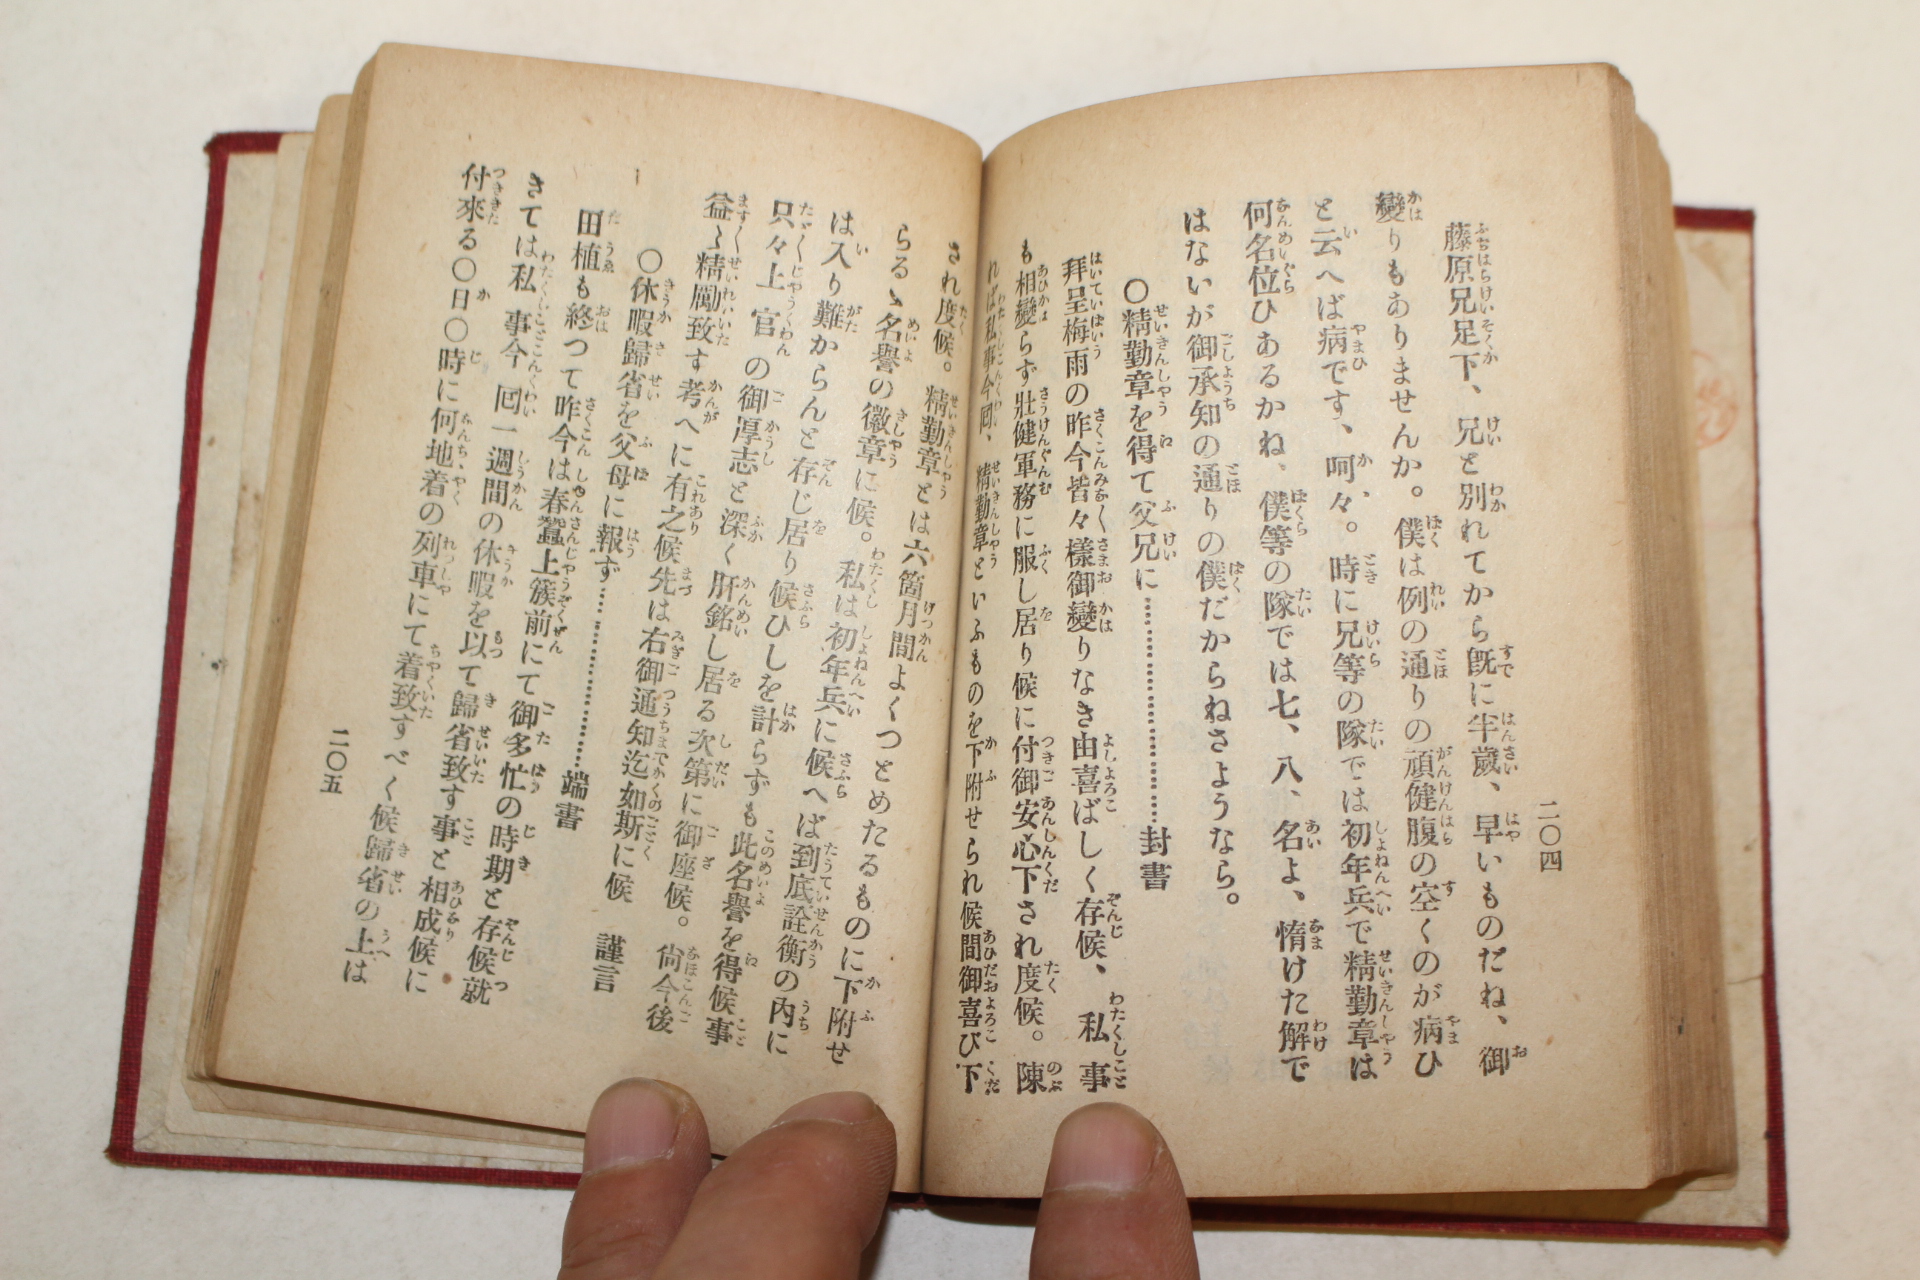 二〇四
藤原兄足下、兄と別れてから既に半歳、早いものだね、御
變りもありませんか。僕は例の通りの頑健腹の空くのが病ひ
と云へば病です、呵々。時に兄等の隊では初年兵で精勤章は
何名位ひあるかね、僕等の隊では七、八、名よ、惰けた解で
はないが御承知の通りの僕だからねさようなら。
〇精勤章を得て父兄に……………………封書
拜呈梅雨の昨今皆々樣御變りなき由喜ばしく存候、私事
も相變らず壯健軍務に服し居り候に付御安心下され度候。陳
れば私事今囘、精勤章といふものを下附せられ候間御喜び下
され度候。精勤章とは六箇月間よくつとめたるものに下附せ
らるゝ名譽の徽章に候。私は初年兵に候へば到底詮衡の內に
は入り難からんと存じ居り候ひしを計らずも此名譽を得候事
只々上官の御厚志と深く肝銘し居る次第に御座候。尙今後
益〻精勵致す考へに有之候先は右御通知迄如斯に候　謹言
〇休暇歸省を父母に報ず……………………端書
田植も終つて昨今は春蠶上簇前にて御多忙の時期と存候就
きては私事今囘一週間の休暇を以て歸省致す事と相成候に
付來る〇日〇時に何地着の列車にて着致すべく候歸省の上は
二〇五